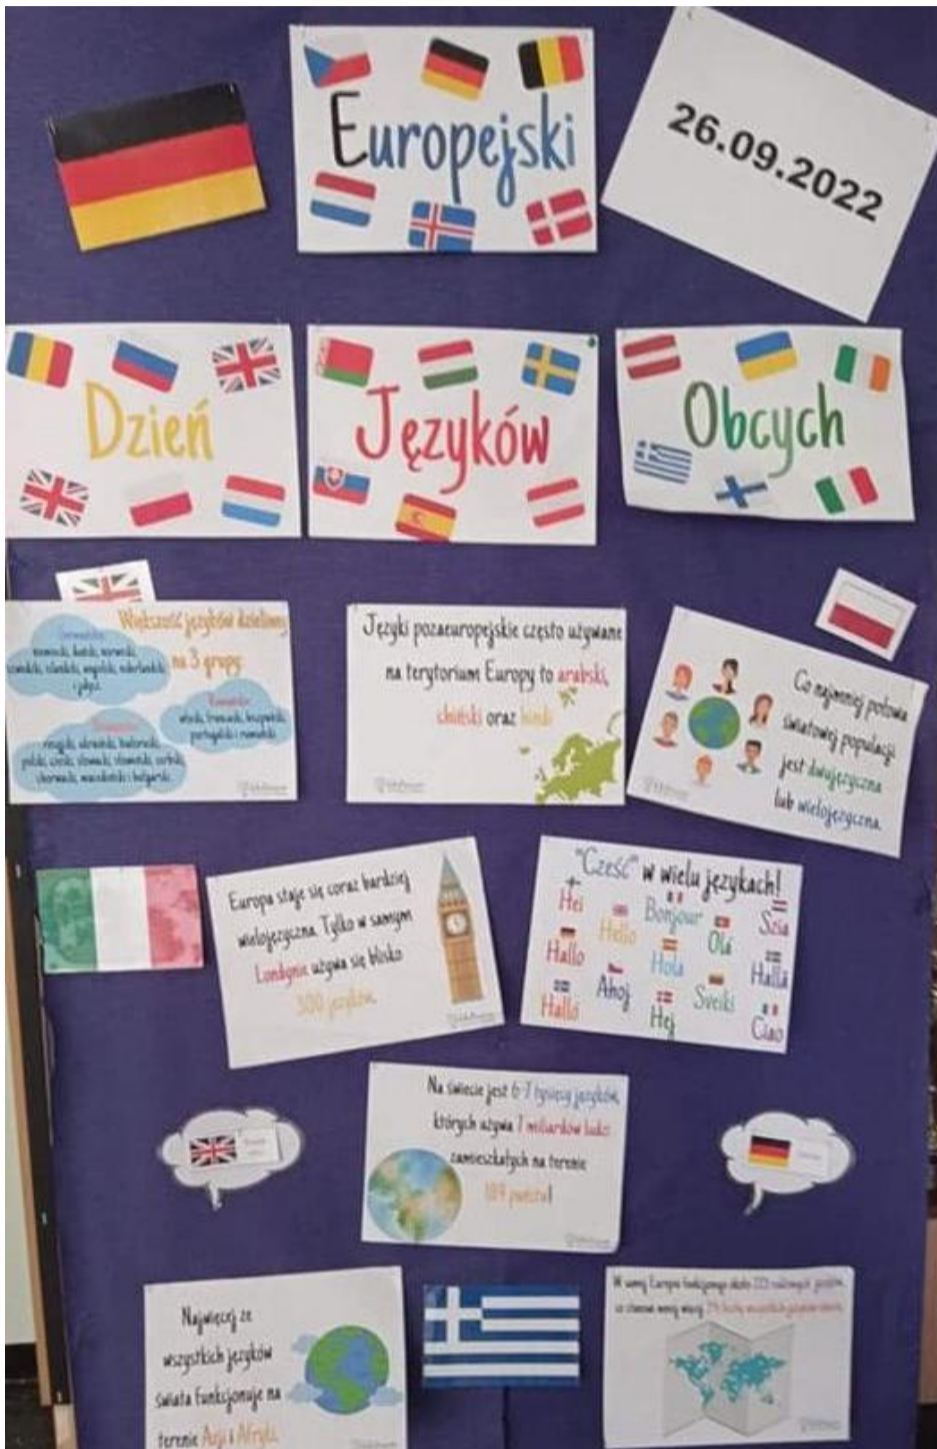 Europejski
26.09.2022
Dzień
Języków
Obcych
Większość języków dzielimy
na 3 grupy:
niemiecki, duński, norweski,
szwedzki, islandzki, angielski, niderlandzki
i jidysz.
włoski, francuski, hiszpański,
portugalski i rumuński.
rosyjski, ukraiński, białoruski,
polski, czeski, słowacki, słoweński, serbski,
chorwacki, macedoński i bułgarski.
Języki pozaeuropejskie często używane
na terytorium Europy to arabski,
chiński oraz hindi
Co najmniej połowa
światowej populacji
jest dwujęzyczna
lub wielojęzyczna.
Europa staje się coraz bardziej
wielojęzyczna. Tylko w samym
Londynie używa się blisko
300 języków.
"Cześć" w wielu językach!
Hei
Hello
Bonjour
Olá
Szia
Hallo
Hola
Hallå
Halló
Ahoj
Hej
Sveiki
Ciao
Na świecie jest 6-7 tysięcy języków,
których używa 7 miliardów ludzi
zamieszkałych na terenie
189 państw!
Najwięcej ze
wszystkich języków
świata funkcjonuje na
terenie Azji i Afryki.
W samej Europie funkcjonuje około rodzimych języków,
co stanowi mniej więcej liczby wszystkich języków świata.